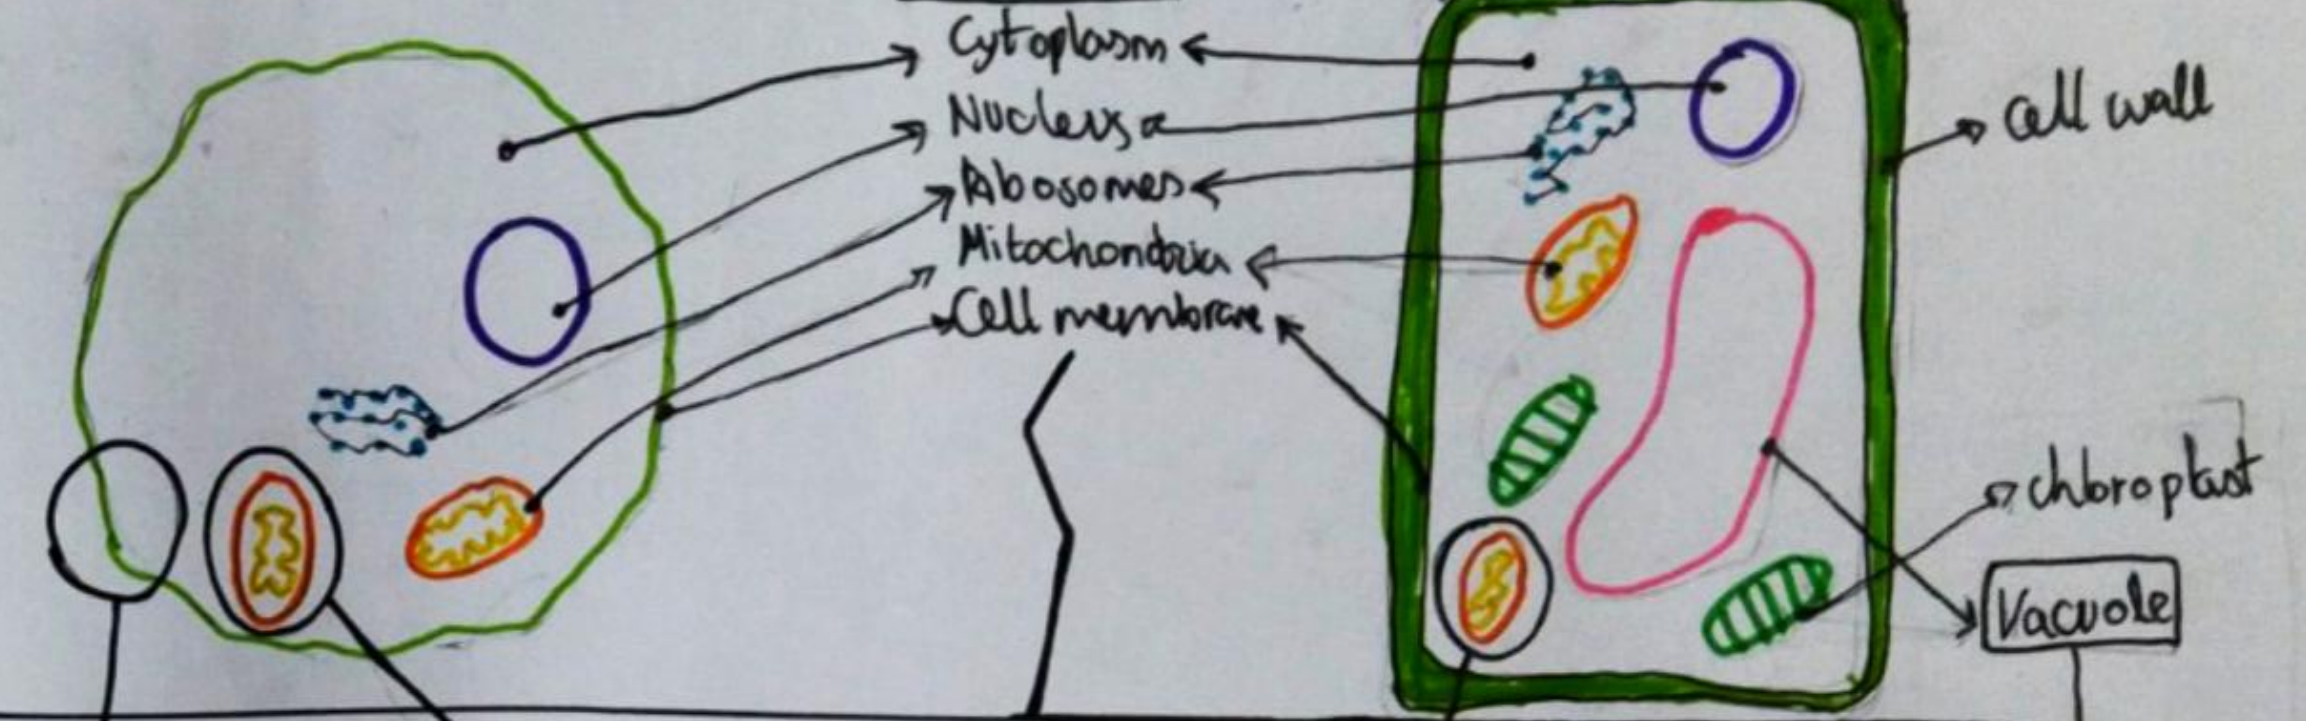 Cytoplasm
Nucleus
Ribosomes
Mitochondria
Cell membrane
Cell wall
chloroplast
Vacuole